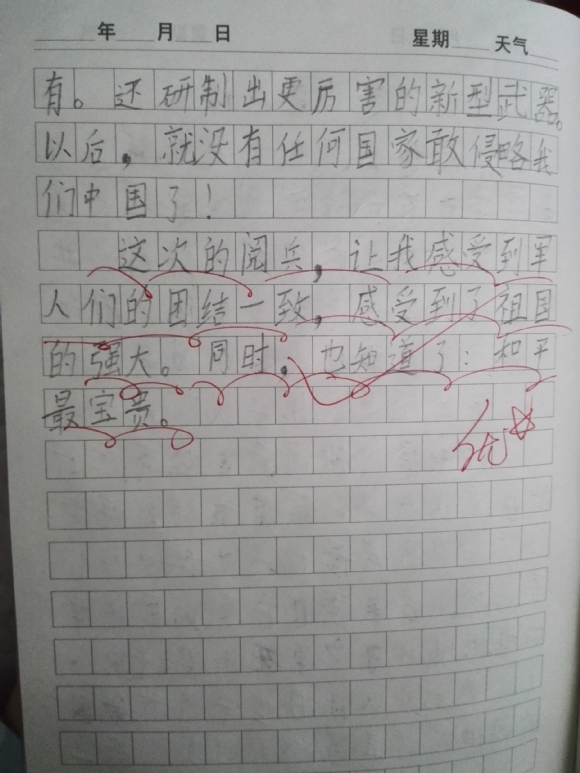 年 月 日 星期 天气
有。还研制出更厉害的新型武器。
以后，就没有任何国家敢侵略我
们中国了！
这次的阅兵，让我感受到军
人们的团结一致，感受到了祖国
的强大。同时，也知道了：和平
最宝贵。
优☆